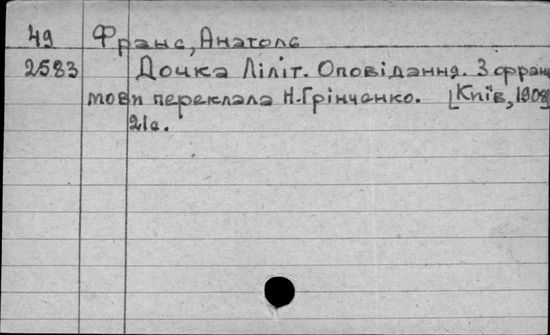 49 Франс, Анатоль
2583 Дочка Ліліт. Оповідання. З франц
мови переклала Н. Грінченко. [Київ, 1908]
21 с.